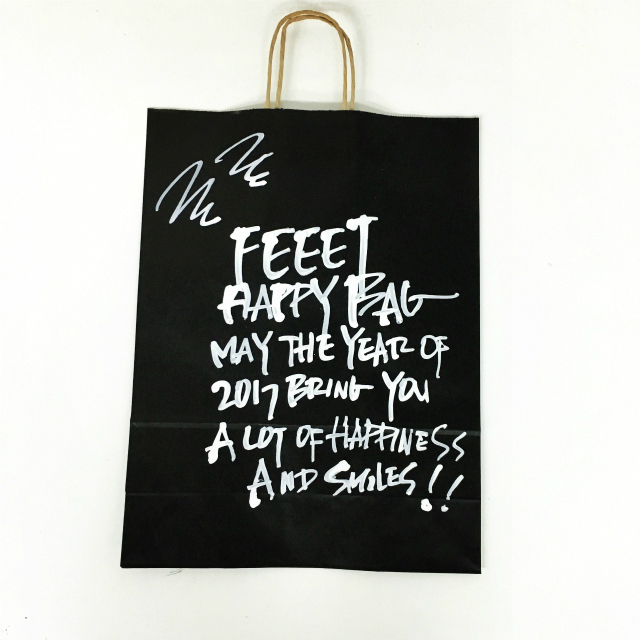 FEEET
HAPPY BAG
MAY THE YEAR OF
2017 BRING YOU
A LOT OF HAPPINESS
AND SMILES!!